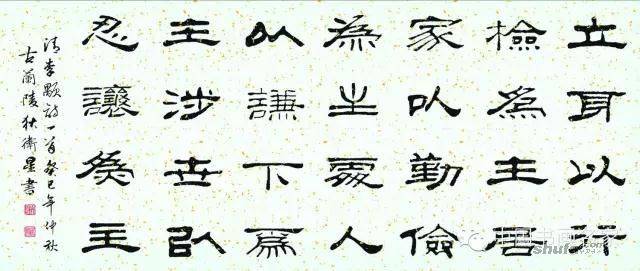 立身以行
檢為主居
家以勤儉
為主處人
以謙下為
主涉世以
忍讓為主
清李顒詩一首癸巳年仲秋
古蘭陵狄衛星書